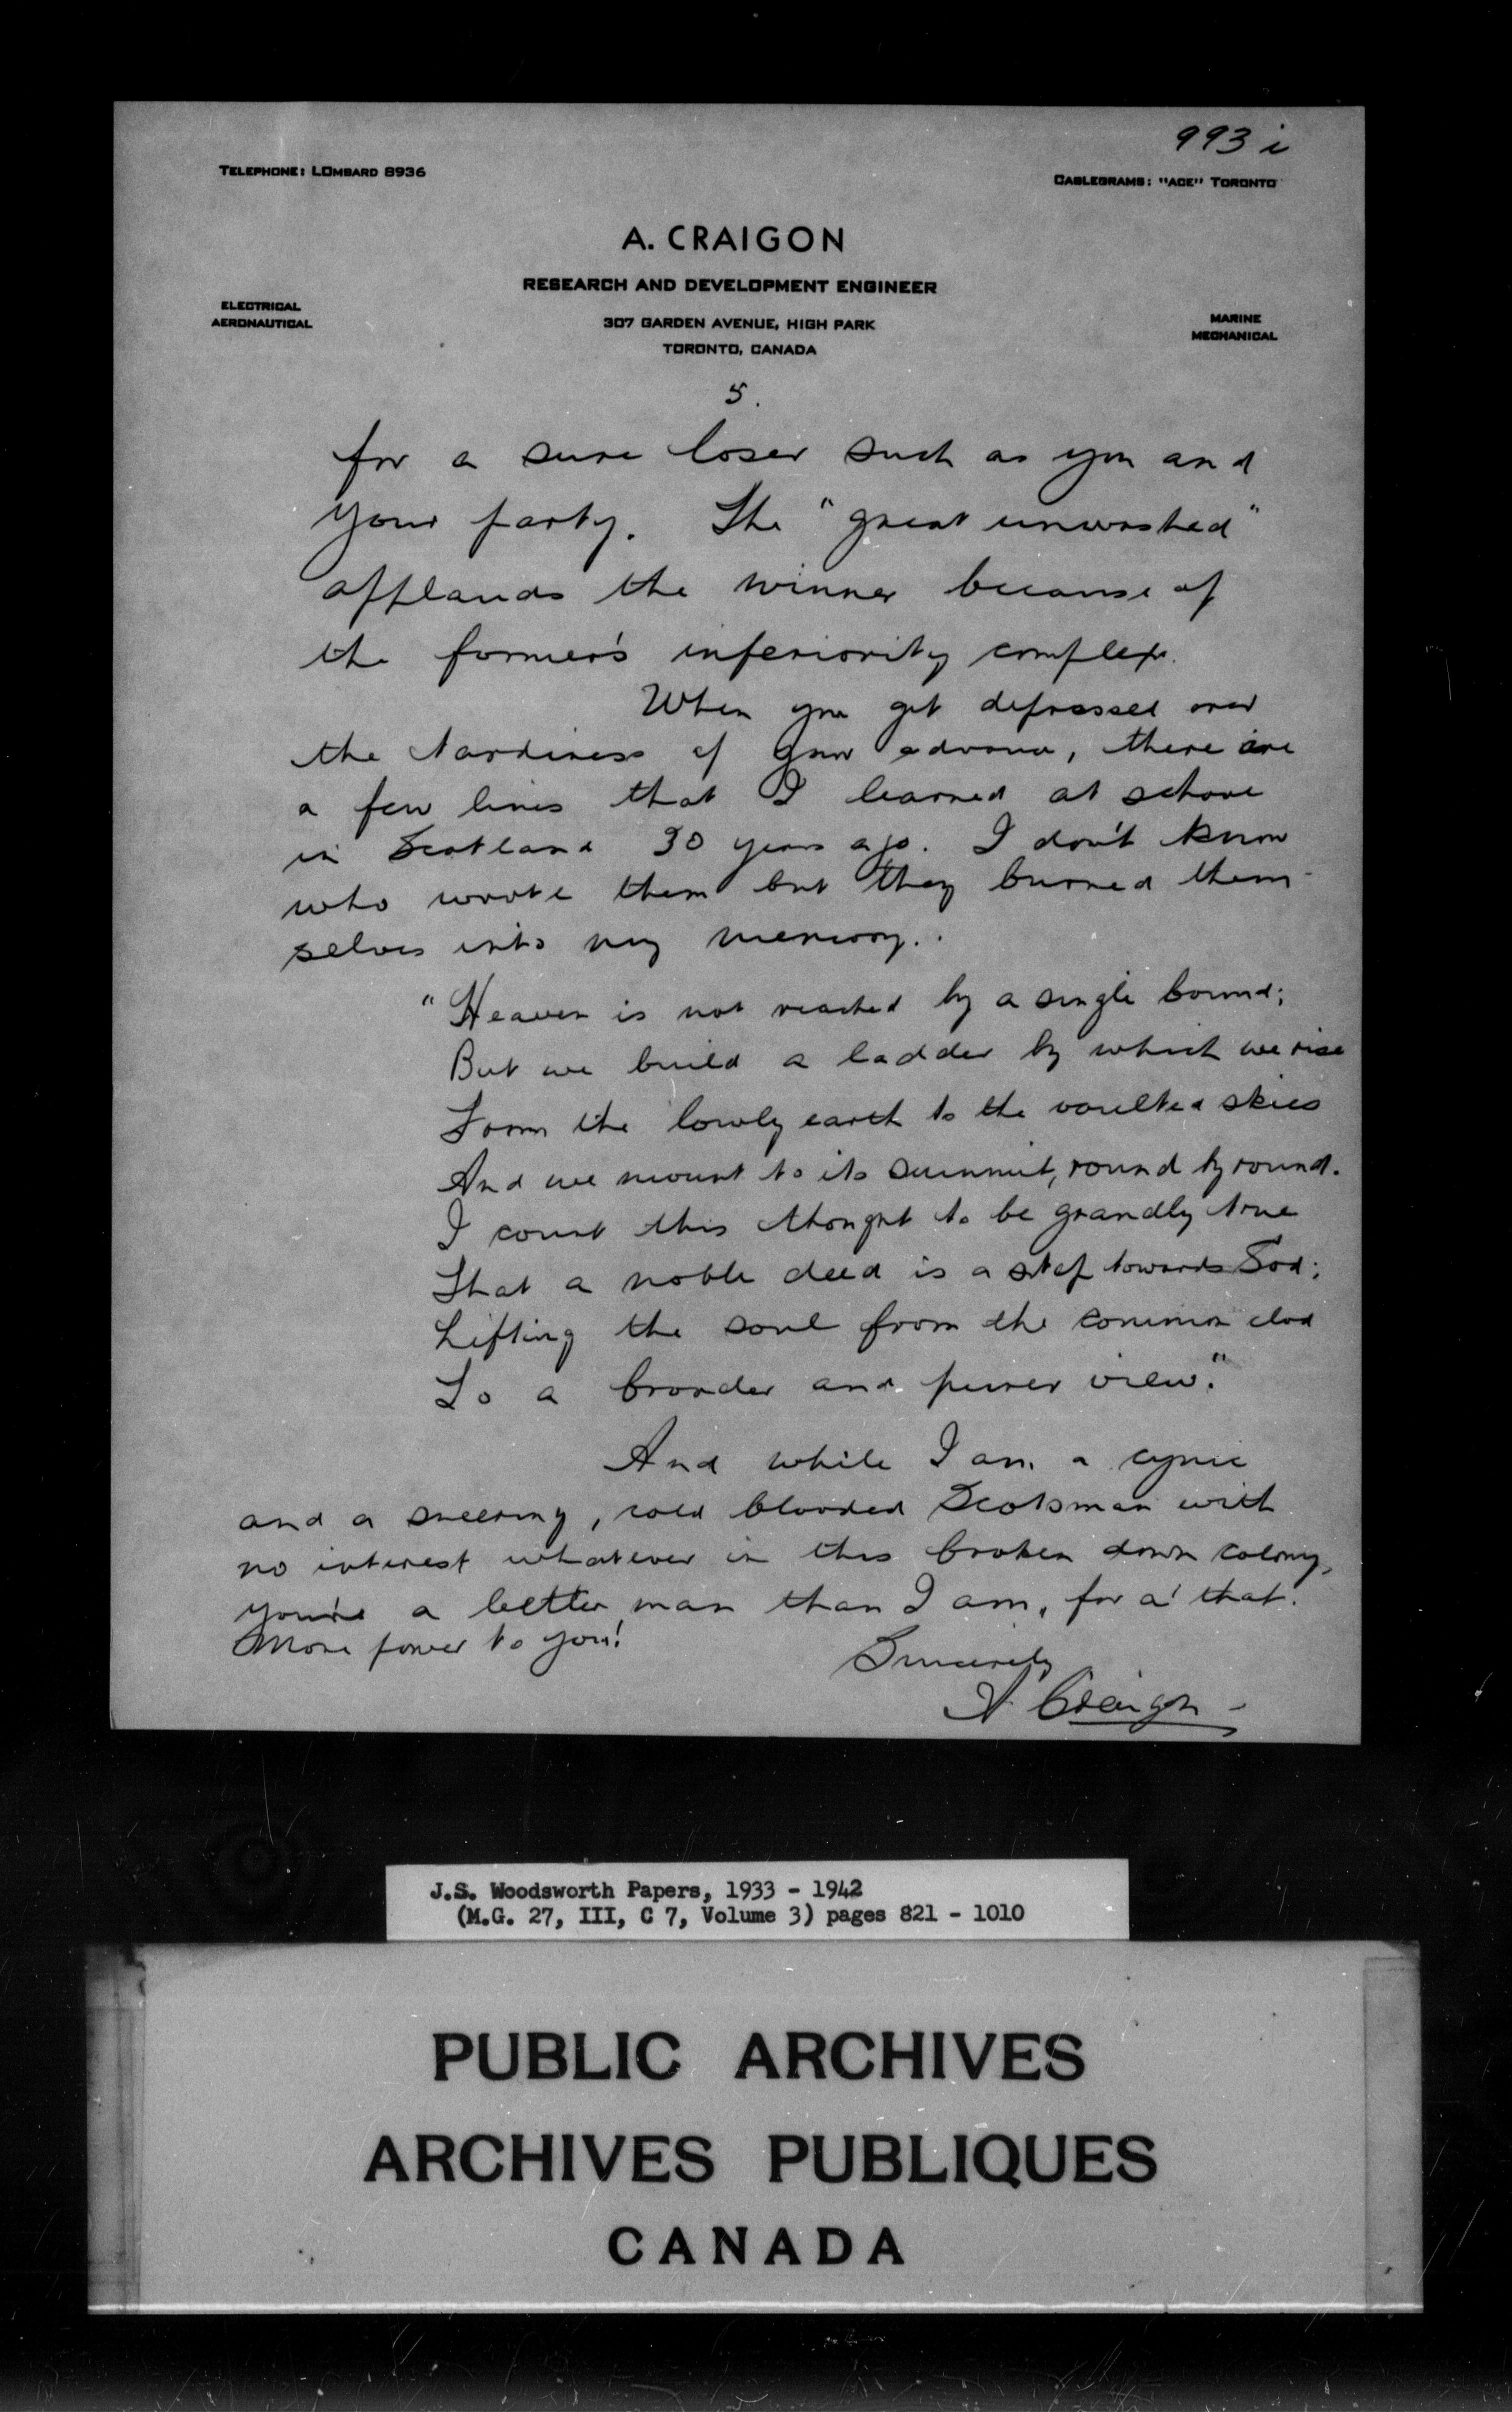 993 i
TELEPHONE: LOMBARD 8936
CABLEGRAMS: "ACE" TORONTO
A. CRAIGON
RESEARCH AND DEVELOPMENT ENGINEER
ELECTRICAL
AERONAUTICAL
307 GARDEN AVENUE, HIGH PARK
TORONTO, CANADA
MARINE
MECHANICAL
5.
for a sure loser such as you and
your party. The "great unwashed"
applauds the winner because of
the former's inferiority complex.
When you get depressed over
the tardiness of your advance, there are
a few lines that I learned at school
in Scotland 30 years ago. I don't know
who wrote them but they burned them-
selves into my memory.
"Heaven is not reached by a single bound;
But we build a ladder by which we rise
From the lowly earth to the vaulted skies
And we mount to its summit, round by round.
I count this thought to be grandly true
That a noble deed is a step towards God;
Lifting the soul from the common clod
To a broader and purer view."
And while I am a cynic
and a sneering, cold blooded Scotsman with
no interest whatever in this broken down colony,
you're a better man than I am, for a' that.
More power to you!
Sincerely
A Craigon
J.S. Woodsworth Papers, 1933 - 1942
(M.G. 27, III, C 7, Volume 3) pages 821 - 1010
PUBLIC ARCHIVES
ARCHIVES PUBLIQUES
CANADA